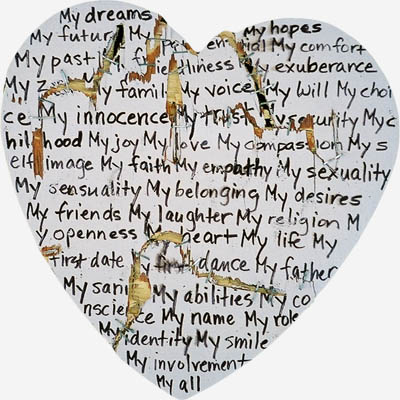 My dreams My hopes
My future My potential My comfort
My past friendliness My exuberance
My family My voice My will My choi
ce My innocence My trust security My c
hildhood My joy My love My compassion My s
elf image My faith My empathy My sexuality
My sensuality My belonging My desires
My friends My laughter My religion M
y openness My heart My life My
first date My first dance My father
My sani My abilities My co
nscience My name My role
My identity My smile
My involvement
My all